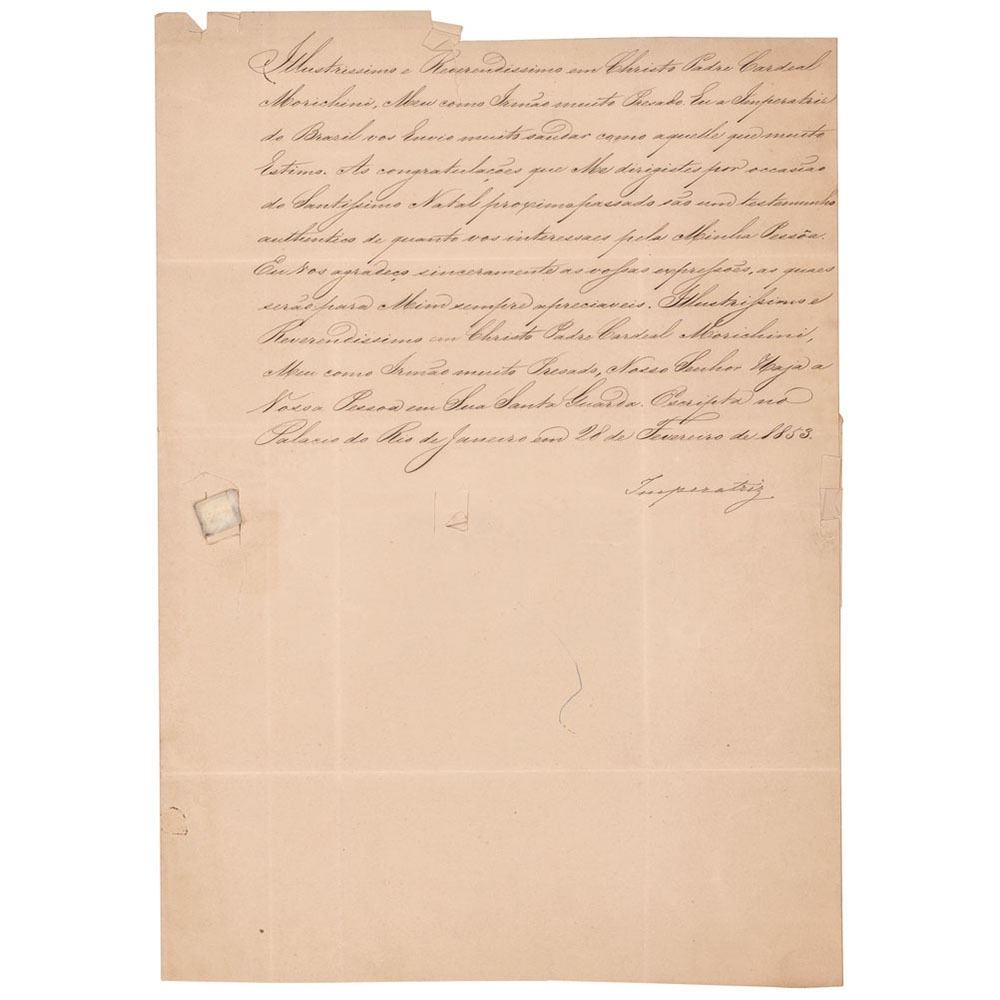 Illustrissimo e Reverendissimo em Christo Padre Cardeal
Morichini, Meu como Irmão muito Presado. Eu a Imperatriz
do Brazil vos Envio muito saudar como aquelle que muito
Estimo. As congratulações que Me dirigistes por occasião
do Santissimo Natal proximo passado são um testemunho
authentico de quanto vos interessaes pela Minha Pessôa.
Eu vos agradeço sinceramente as vossas expressões, as quaes
serão para Mim sempre apreciaveis. Illustrissimo e
Reverendissimo em Christo Padre Cardeal Morichini,
Meu como Irmão muito Presado, Nosso Senhor Haja a
Vossa Pessoa em Sua Santa Guarda. Escripta no
Palacio do Rio de Janeiro em 28 de Fevereiro de 1853.
Imperatriz